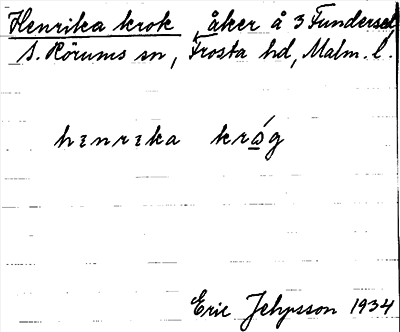 Henrika krok åker å 3 Fundersed
S. Rörums sn, Frosta hd, Malm. l.
hɛnrɩka krώ̲g
Eric Jehpsson 1934